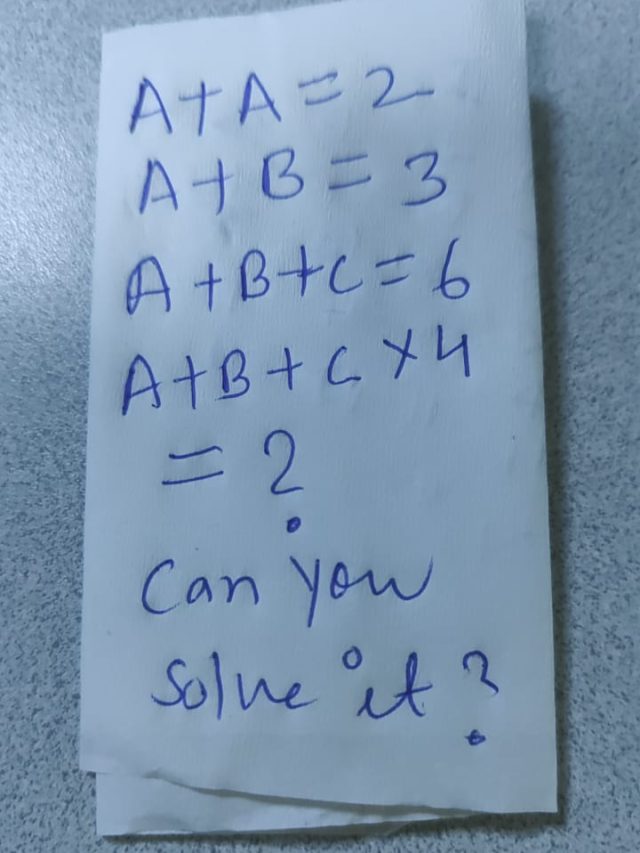 A+A=2
A+B=3
A+B+C=6
A+B+C×4
=?
Can You
Solve it?